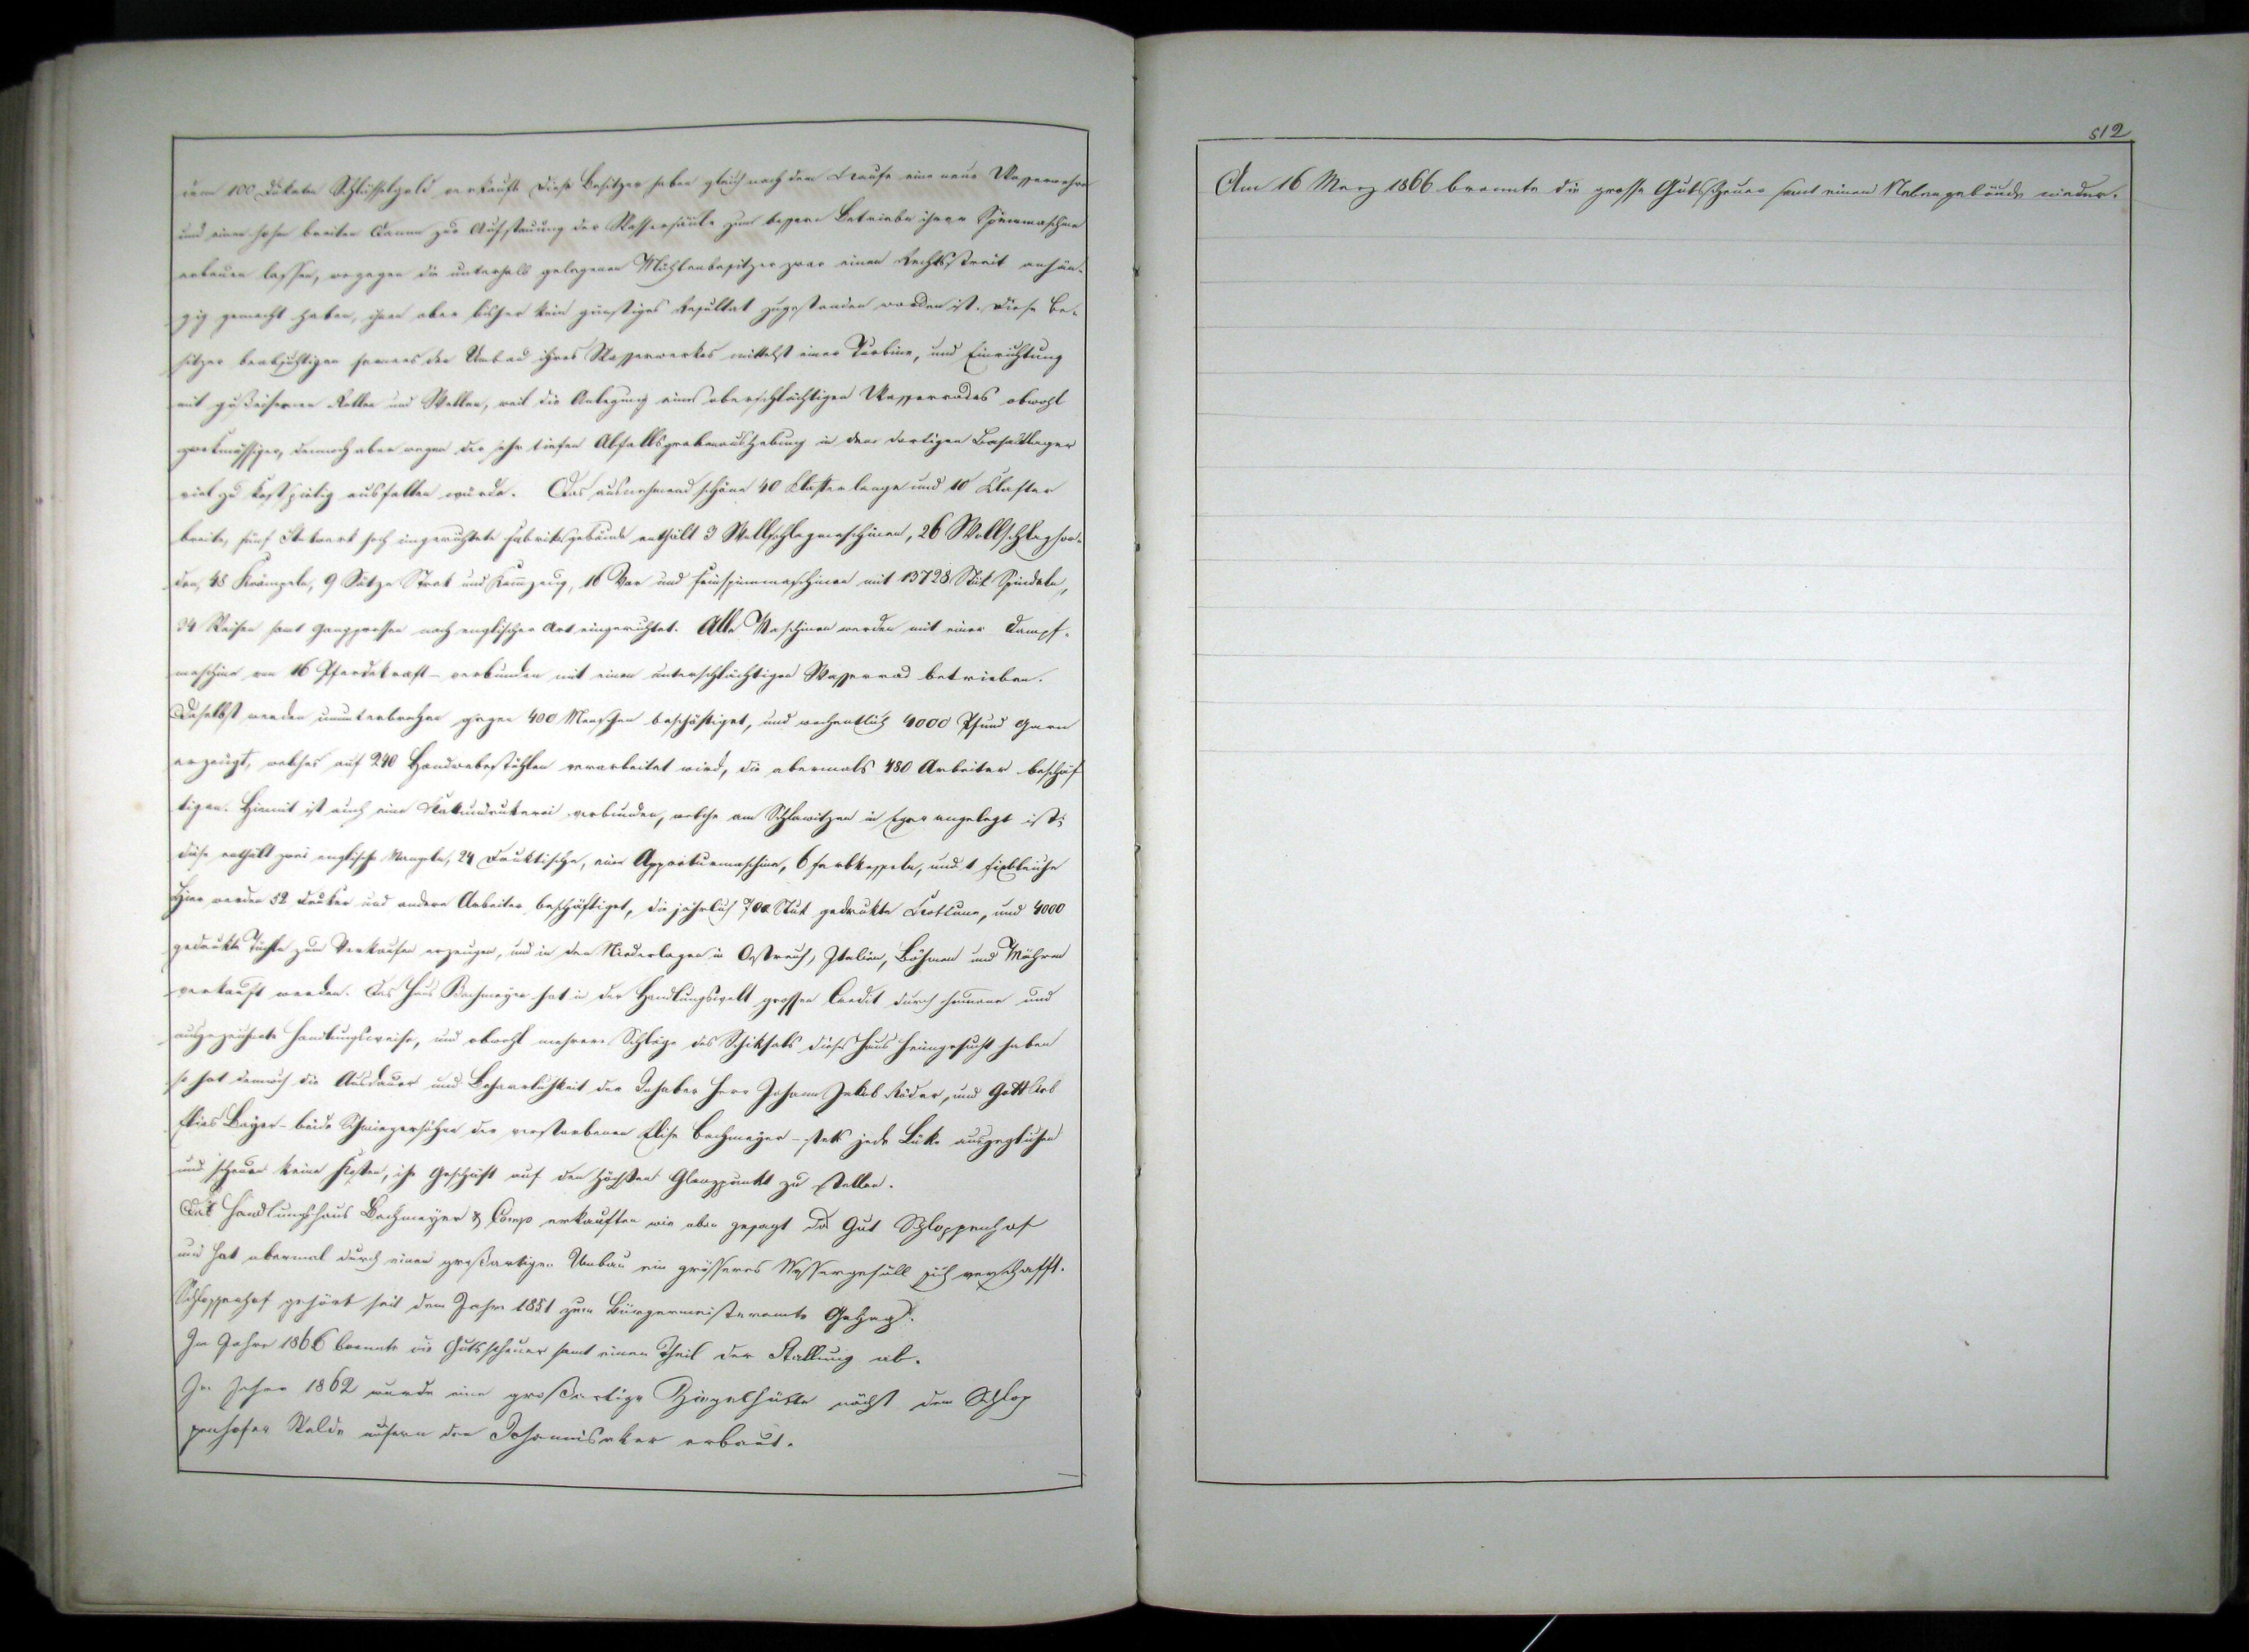 dem 100 Dukaten Schlüsselgeld verkauft. Diese Besitzer haben gleich nach dem Kaufe eine neue Wasserwehre
und einen hohen breiten Damm zur Aufstauung der Wassersäule zum bessern Betriebe ihrer Spinnmaschine
erbauen lassen, wogegen die unterhalb gelegenen Mühlenbesitzer zwar einen Rechtsstreit anhän-
gig gemacht haben, ihnen aber bisher kein günstiges Resultat zugestanden worden ist. Diese Be-
sitzer beabsichtigen ferners den Umbau ihres Wasserwerkes mittelst einer Turbine, und Einrichtung
mit gußeisernen Rollen und Wellen, weil die Anlegung eines oberschlächtigen Wasserrades obwohl
zwekmässiger, dennoch aber wegen der sehr tiefen Abfallsgrabenaushebung in dem dortigen Basaltlager
viel zu kostspielig ausfallen würde. Das ausnehmend schöne 40 Klafter lange und 10 Klafter
breite, fünf Stokwerk hoch eingerichtete Fabriksgebäude enthält 3 Wollschlagmaschinen, 26 Wollschlaghor-
den, 48 Krämpeln, 9 Sätze Strek und Kammzeug, 16 Vor und Feinspinnmaschinen mit 13728 Stük Spindeln,
34 Weifen samt Garnpressen nach englischer Art eingerichtet. Alle Maschinen werden mit einer Dampf-
maschine von 16 Pferdekraft – verbunden mit einen unterschlächtigen Wasserrad betrieben.
Daselbst werden ununterbrochen gegen 400 Menschen beschäftiget, und wochentlich 4000 Pfund Garn
erzeugt, welches auf 240 Handwebestühlen verarbeitet wird, die abermals 480 Arbeiter beschäf
tigen. Hiemit ist auch eine Katundrukerei verbunden, welche am Schlawitzen in Eger angelegt ist;
diese enthält zwei englische Mangeln, 24 Druktische, eine Apparturmaschine, 6 Farbkesseln, und 1 Fixbleiche
Hier werden 52 Druker und andere Arbeiter beschäftiget, die jährlich 700 Stük gedrukte Cottune, und 4000
gedrukte Tücheln zum Verkaufen erzeugen, und in den Niederlagen in Östreich, Italien, Böhmen und Mähren
verkauft werden. Das Haus Bachmayer hat in der Handlungswelt grossen Credit durch humane und
ausgezeichnete Handlungsweise, und obwohl mehrere Schläge des Schiksals dieses Haus heimgesucht haben
so hat dennoch die Ausdauer und Beharrlichkeit der Inhaber Herr Johann Jakob Röder, und Gottlieb
Elias Bayer – beide Schwiegersöhne der verstorbenen Elise Bachmayer – stets jede Lüke ausgeglichen
und scheuen keine Kosten, ihr Geschäft auf den höchsten Glanzpunkt zu stellen.
Das Handlungshaus Bachmeyer & Comp erkauften wie oben gesagt das Gut Schloppenhof
und hat abermal durch einen großartigen Umbau ein grösseres Wassergefäll sich verschafft.
Schloppenhof gehört seit dem Jahre 1851 zum Bürgermeisteramte Gehag.
Im Jahre 1866 brannte die Gutsscheuer samt einen Theil der Stallung ab.
Im Jahre 1862 wurde eine großartige Ziegelhütte nächst dem Schlop
penhofer Walde unfern den Johannisaker erbaut.
512
Am 16 Merz 1866 brannte die grosse Gutsscheuer samt einem Nebengebäude nieder.